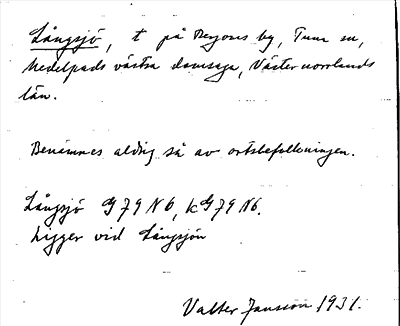 Långsjö, t på Bergoms by, Tuna sn,
Medelpads västra domsaga, Västernorrlands
län.
Benämnes aldrig så av ortsbefolkningen.
Långsjö G 79 N6, kG 79 N6.
Ligger vid Långsjön
Valter Jansson 1931.